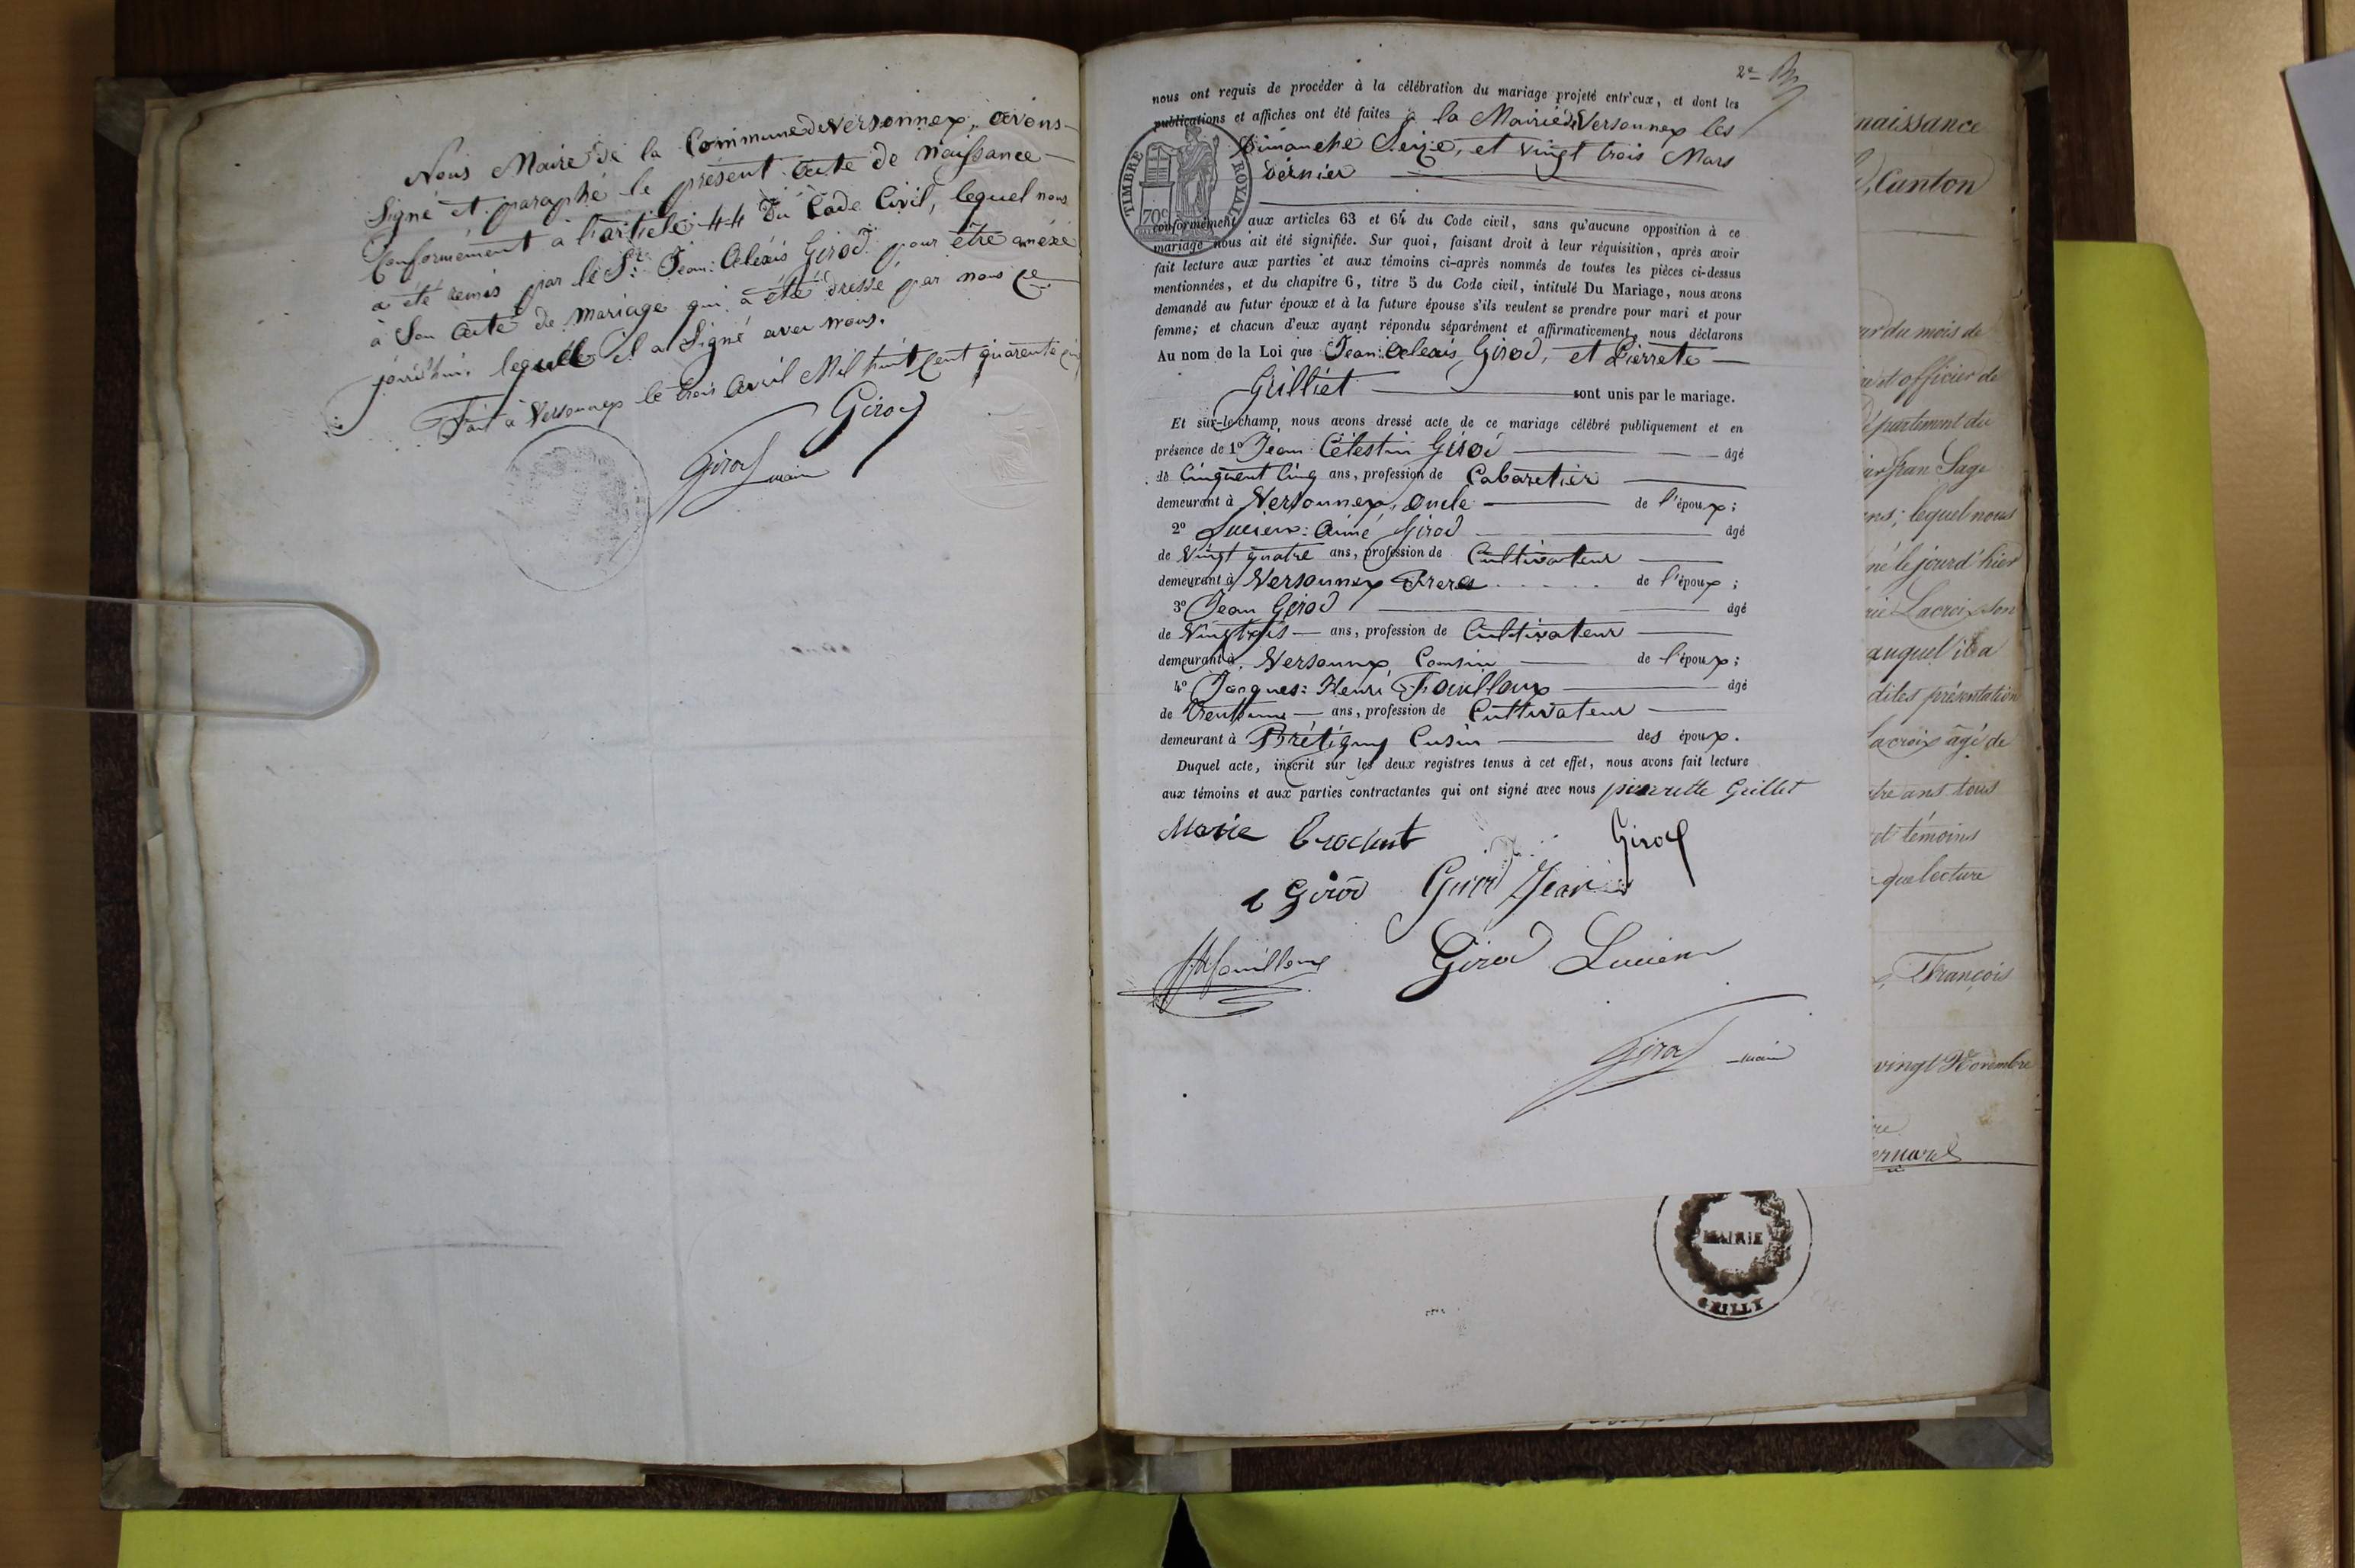 Nous Maire de la Commune de Versonnex, avons
Signé et paraphé le présent acte de naissance
Conformément à l'article 44 du Code Civil, lequel nous
a été remis par le Sr. Jean: Alexis Girod pour être anéxé
à Son acte de mariage qui à été dressé par nous ce
jourd'hui. lequel il a Signé avec nous.
Fait à Versonnex le trois Avril Mil huit cent quarante
Girod
Girod maire
2e
nous ont requis de procéder à la célébration du mariage projeté entr'eux, et dont les
publications et affiches ont été faites à la Mairie de Versonnex les
Dimanche Seize, et vingt trois Mars
Dernier
TIMBRE ROYAL
70c
conformément aux articles 63 et 64 du Code civil, sans qu'aucune opposition à ce
mariage nous ait été signifiée. Sur quoi, faisant droit à leur réquisition, après avoir
fait lecture aux parties et aux témoins ci-après nommés de toutes les pièces ci-dessus
mentionnées, et du chapitre 6, titre 5 du Code civil, intitulé Du Mariage, nous avons
demandé au futur époux et à la future épouse s'ils veulent se prendre pour mari et pour
femme; et chacun d'eux ayant répondu séparément et affirmativement, nous déclarons
Au nom de la Loi que Jean: Alexis Girod, et Pierrete
Grilliet sont unis par le mariage.
Et sur-le-champ, nous avons dressé acte de ce mariage célébré publiquement et en
présence de 1o Jean Célestin Girod âgé
de Cinquent Cinq ans, profession de Cabaretier
demeurant à Versonnex, oncle de l'époux;
2o Lucien: Aimé Girod âgé
de Vingt quatre ans, profession de Cultivateur
demeurant à Versonnex Frere de l'époux;
3o Jean Girod âgé
de ans, profession de Cultivateur
demeurant à Versonnex Cousin de l'époux;
4o Jacques: Henri Fouilloux âgé
de trent une ans, profession de Cultivateur
demeurant à Brétigny Cusin des époux.
Duquel acte, inscrit sur les deux registres tenus à cet effet, nous avons fait lecture
aux témoins et aux parties contractantes qui ont signé avec nous pierrette Grillet
Marie brochut
Girod
Girod Girod Jean
Girod Lucien
Girod maire
MAIRIE
GRILLY
naissance
Canton
du mois de
officier de
département du
Jean Sage
ans; lequel nous
né le jourd'hier
Lacroix son
auquel il a
dites présentation
Lacroix âgé de
ans tous
et témoins
que lecture
François
vingt Novembre